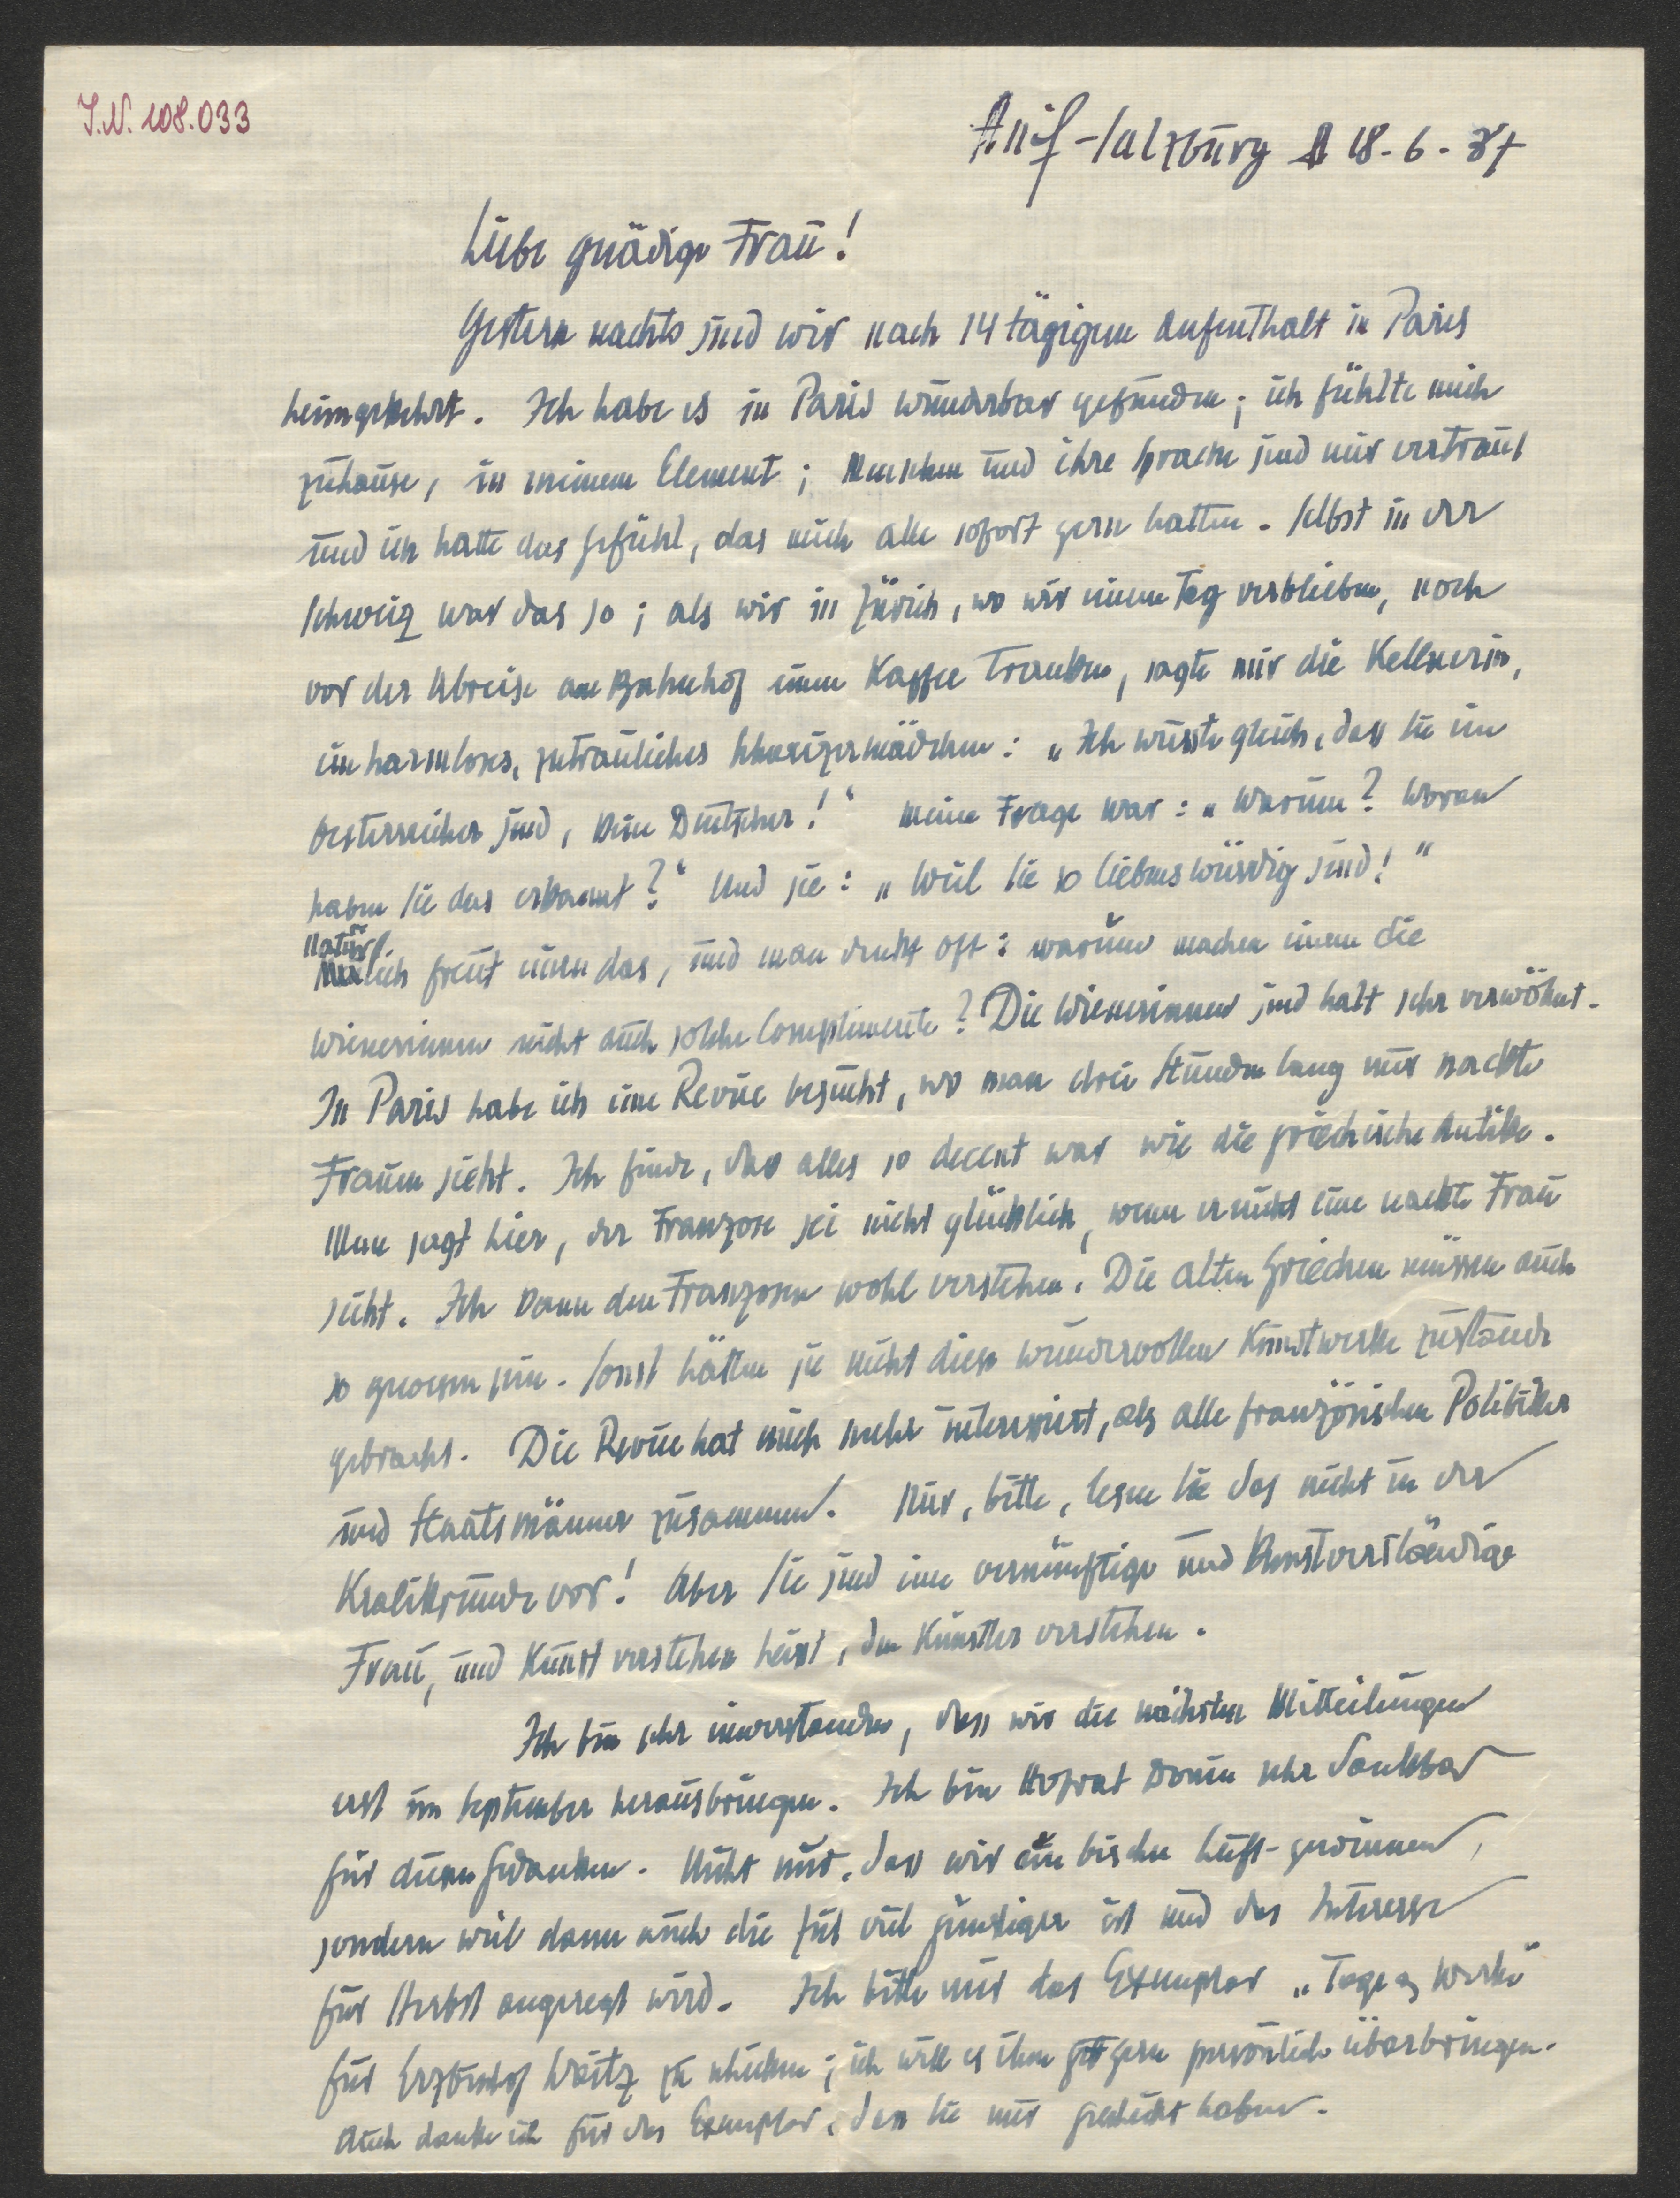 I.N. 108.033
Anif-Salzburg 18-6-37
Liebe gnädige Frau!
Gestern nachts sind wir nach 14 tägigem Aufenthalt in Paris
heimgekehrt. Ich habe es in Paris wunderbar gefunden; ich fühlte mich
zuhause, in meinem Element; Menschen und ihre Sprache sind mir vertraut
und ich hatte das Gefühl, das mich alle sofort gern hatten. Selbst in der
Schweiz war das so; als wir in Zürich, wo wir einen Tag verblieben, noch
vor der Abreise am Bahnhof einen Kaffee tranken, sagte mir die Kellnerin,
ein harmloses, zutrauliches Schweizermädchen: „Ich wusste gleich, dass Sie ein
Oesterreicher sind, kein Deutscher!" Meine Frage war: „Warum? Woran
haben Sie das erkannt?" Und sie: „Weil Sie so liebenswürdig sind!"
Natürlich freut einen das, und man denkt oft: warum machen einem die
Wienerinnen nicht auch solche Complimente? Die Wienerinnen sind halt sehr verwöhnt.
In Paris habe ich eine Revue besucht, wo man drei Stunden lang nur nackte
Frauen sieht. Ich finde, das alles so decent war wie die griechische Antike.
Man sagt hier, der Franzose sei nicht glücklich, wenn er nicht eine nackte Frau
sieht. Ich kann den Franzosen wohl verstehen. Die alten Griechen müssen auch
so gewesen sein. Sonst hätten sie nicht diese wundervollen Kunstwerke zustande
gebracht. Die Revue hat mich mehr interessiert, als alle französischen Politiker
und Staatsmänner zusammen. Nur, bitte, lesen Sie das nicht in der
Kralikrunde vor! Aber Sie sind eine vernünftige und kunstverständige
Frau, und Kunst verstehen heisst, den Künstler verstehen.
Ich bin sehr einverstanden, dass wir die nächsten Mitteilungen
erst im September herausbringen. Ich bin Hofrat Donin sehr dankbar
für diesen Gedanken. Nicht nur, dass wir ein bischen Luft gewinnen,
sondern weil dann auch die Zeit viel günstiger ist und das Interesse
für Herbst angeregt wird. Ich bitte mir das Exemplar „Tage Werke"
für Erzbischof Waitz zu schicken; ich will es ihm gern persönlich überbringen.
Auch danke ich für das Exemplar, das Sie mir geschickt haben.